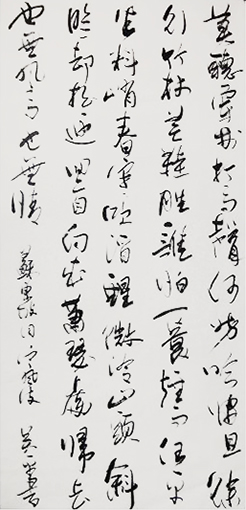 莫聽穿林打葉聲何妨吟嘯且徐
行竹杖芒鞋輕勝馬誰怕一蓑煙雨任平
生料峭春風吹酒醒微冷山頭斜
照却相迎回首向來蕭瑟處歸去
也無風雨也無晴 蘇東坡詞定風波 書